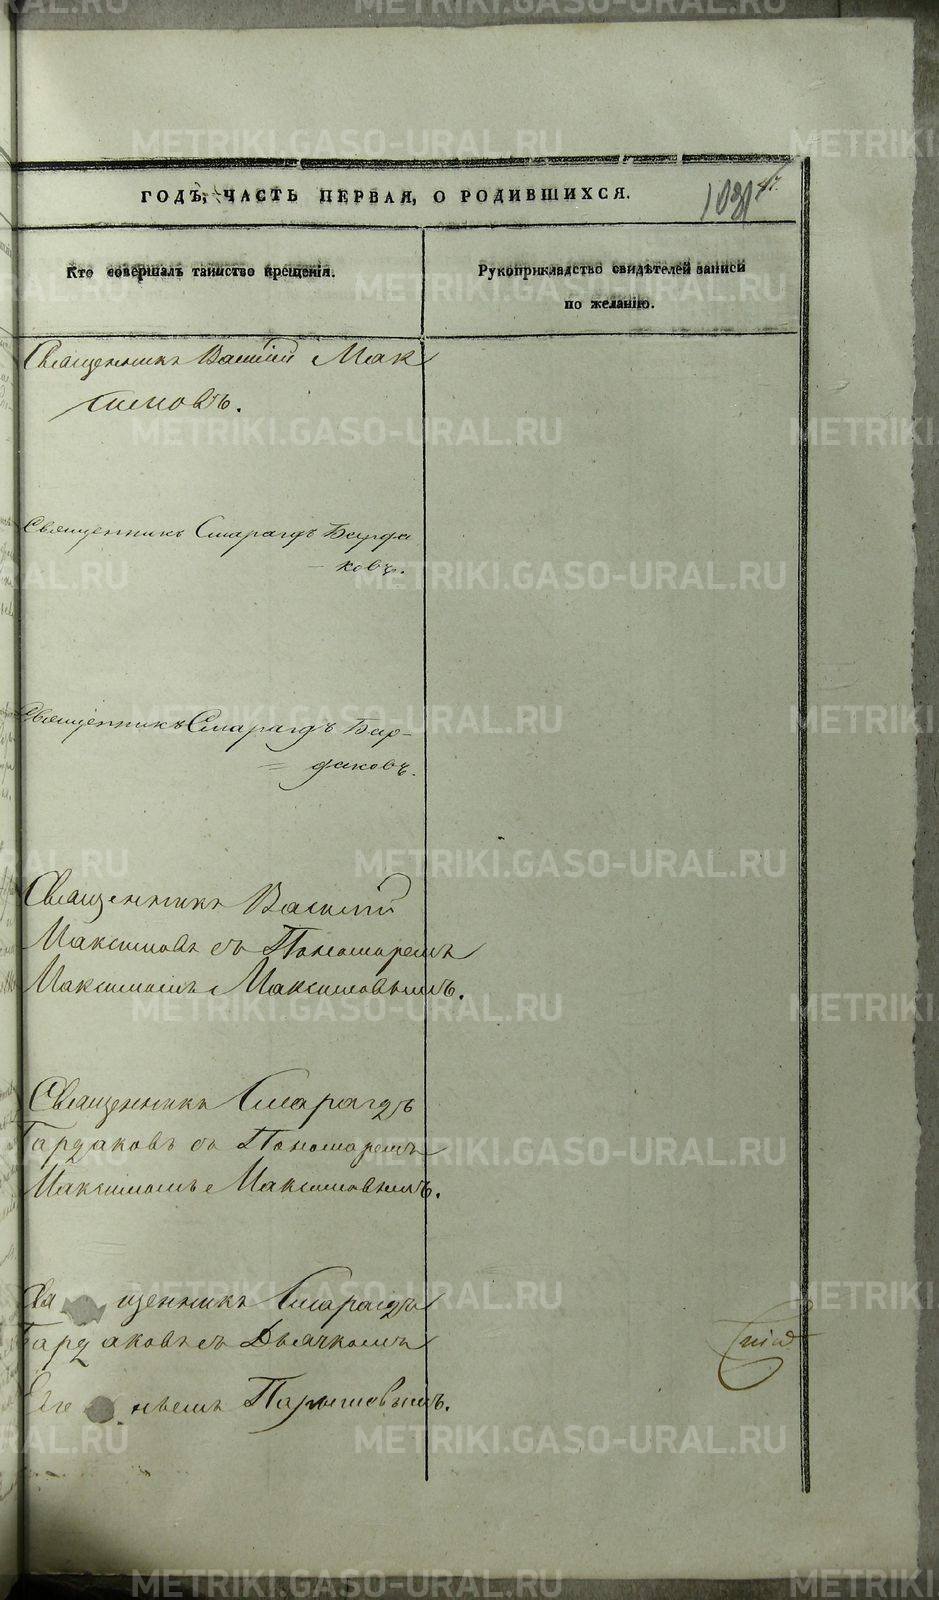 ГОДЪ, ЧАСТЬ ПЕРВАЯ, О РОДИВШИХСЯ.
Кто совершалъ таинство крещенія.
Рукоприкладство свидѣтелей записи
по желанію.
Священникъ Василій Мак
симовъ.
Священникъ Смарагдъ Барда
ковъ.
Священникъ Смарагдъ Бар-
даковъ.
Священникъ Василій
Максимовъ съ Пономаремъ
Максимомъ Максимовымъ.
Священникъ Смарагдъ
Бардаковъ съ Пономаремъ
Максимомъ Максимовымъ.
Свя щенникъ Смарагдъ
Бардаковъ съ Дьячкомъ
Евге ніемъ
METRIKI.GASO-URAL.RU